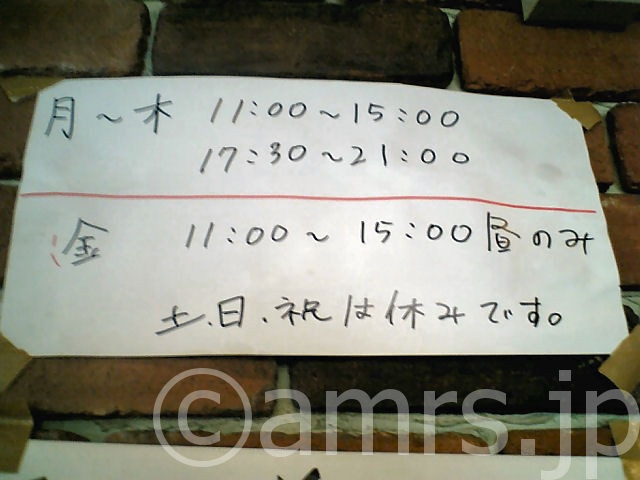 月～木 11:00～15:00
17:30～21:00
金 11:00～15:00 昼のみ
土.日.祝は休みです。
©amrs.jp